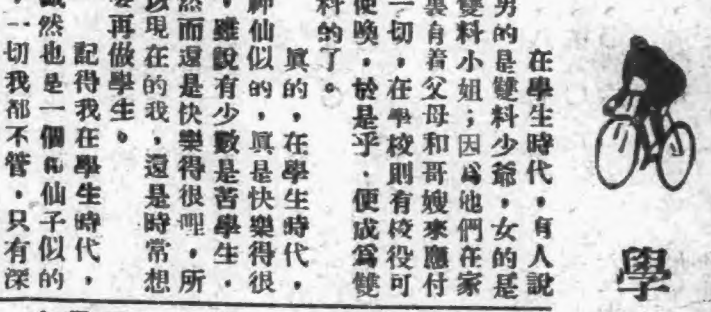 學
在學生時代，有人說
男的是雙料少爺，女的是
雙料小姐；因爲他們在家
裏有着父母和哥嫂來應付
一切，在學校則有校役可
使喚，於是乎，便成爲雙
料的了。
眞的，在學生時代，
神仙似的，眞是快樂得很
，雖說有少數是苦學生，
然而還是快樂得很哩，所
該現在的我，還是時常想
要再做學生。
記得我在學生時代，
然也是一個仙子似的
，一切我都不管，只有深